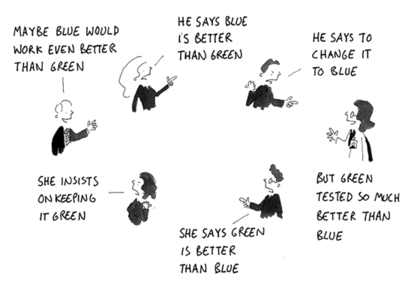 MAYBE BLUE WOULD
WORK EVEN BETTER
THAN GREEN
HE SAYS BLUE
IS BETTER
THAN GREEN
HE SAYS TO
CHANGE IT
TO BLUE
BUT GREEN
TESTED SO MUCH
BETTER THAN
BLUE
SHE SAYS GREEN
IS BETTER
THAN BLUE
SHE INSISTS
ON KEEPING
IT GREEN